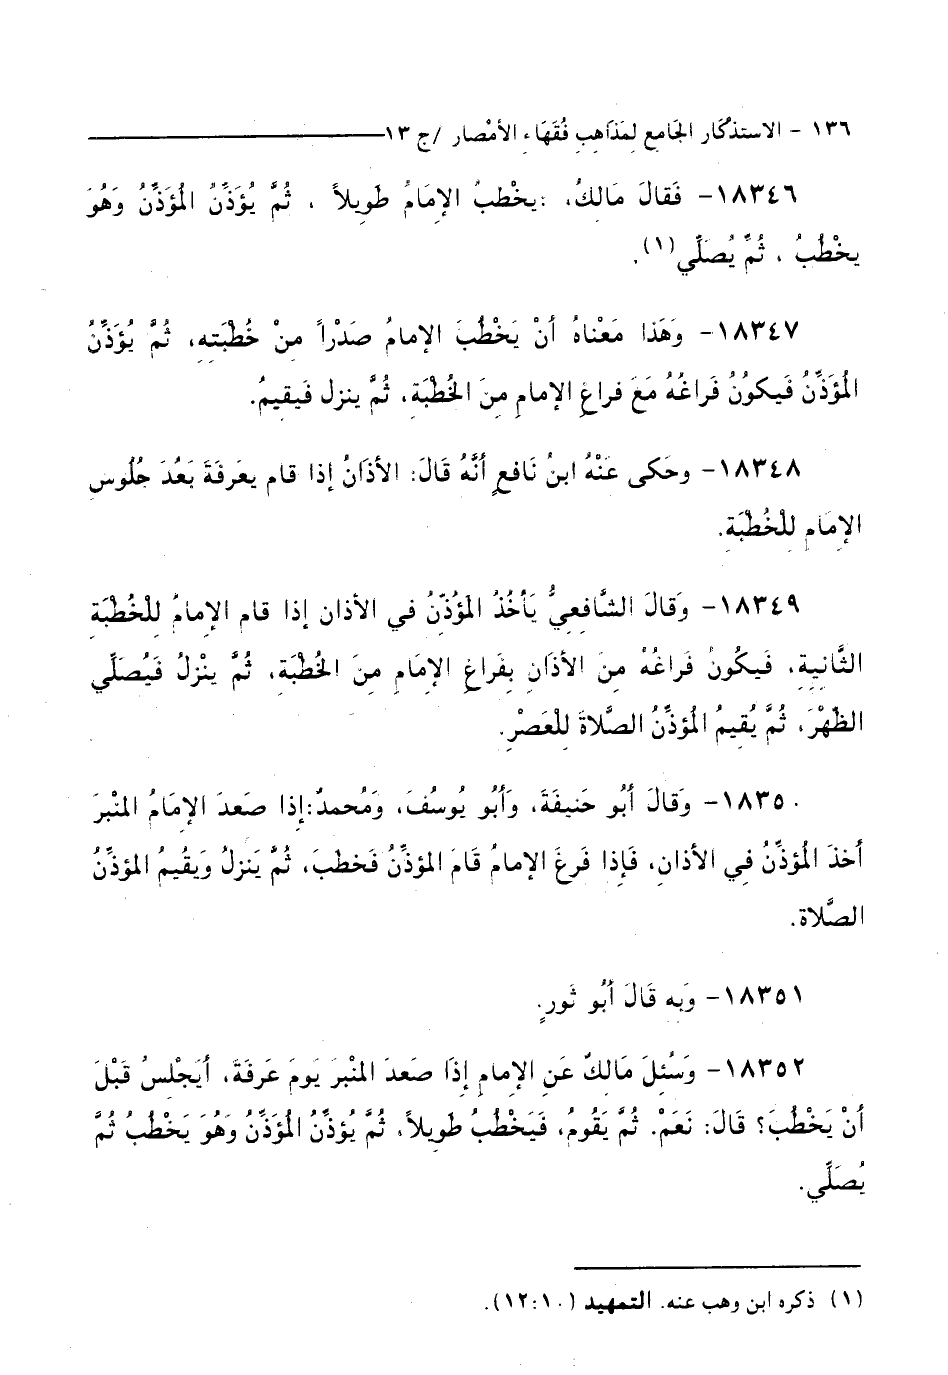 ١٣٦ - الاستذْكَار الجَامع لمَذَاهبِ فُقَهَاء الأمْصار /ج ١٣
١٨٣٤٦- فَقالَ مَالكٌ، :يخْطبُ الإمَامُ طَويلاً ، ثُمَّ يُؤَذِّنُ المُؤَذِّنُ وَهُوَ
يخْطُبُ ، ثُمَّ يُصَلِّي(١).
١٨٣٤٧- وَهَذا مَعْناهُ أنْ يَخْطُبَ الإمامُ صَدْراً منْ خُطْبَتِهِ، ثُمَّ يُؤَذِّنُ
المُؤَذِّنُ فَيكونُ فَراغُهُ مَعَ فراغِ الإمامِ مِنَ الخُطْبَةِ، ثُمَّ ينزل فَيقيمُ.
١٨٣٤٨- وحَكى عَنْهُ ابنُ نَافعٍ أنَّهُ قَالَ: الأذَانُ إذا قام بِعَرفَةَ بَعْدَ جُلُوسِ
الإمَامِ للْخُطْبَةِ.
١٨٣٤٩- وَقالَ الشَّافِعِيُّ يَأخُذُ المَؤذِّنُ في الأذان إذا قام الإمامُ للْخُطْبَةِ
الثَّانيةِ، فَيكُونُ فَراغُهُ منَ الأذَانِ بِفَراغِ الإمَامِ منَ الخُطْبَةِ، ثُمَّ ينْزلُ فَيُصَلِّي
الظُهْرَ، ثُمَّ يُقيمُ المُؤذِّنُ الصَّلاةَ للْعَصْرِ.
١٨٣٥٠- وَقالَ أبُو حَنيفَةَ، وَأبُو يُوسُفَ، وَمُحمدٌ:إذا صَعدَ الإمَامُ المنْبرَ
أخذَ المُؤذِّنُ فِي الأذانِ، فَإذا فَرغَ الإمامُ قَامَ المؤذِّنُ فَخطَبَ، ثُمَّ يَنزلُ وَيقيمُ المؤذِّنُ
الصَّلاة.
١٨٣٥١- وَبِه قَالَ أبُو ثَورٍ.
١٨٣٥٢- وَسُئلَ مَالكٌ عَنِ الإمامِ إذَا صَعدَ المنْبرَ يَومَ عَرفَةَ، أيَجْلسُ قَبْلَ
أنْ يَخْطُبَ؟ قَالَ: نَعَمْ. ثُمَّ يَقُومُ، فَيَخْطُبُ طَويلاً، ثُمَّ يُؤذِّنُ المُؤَذِّنُ وَهُوَ يَخْطُبُ ثُمَّ
يُصَلِّي.
(١) ذكره ابن وهب عنه. التمهيد (١٠:١٢).